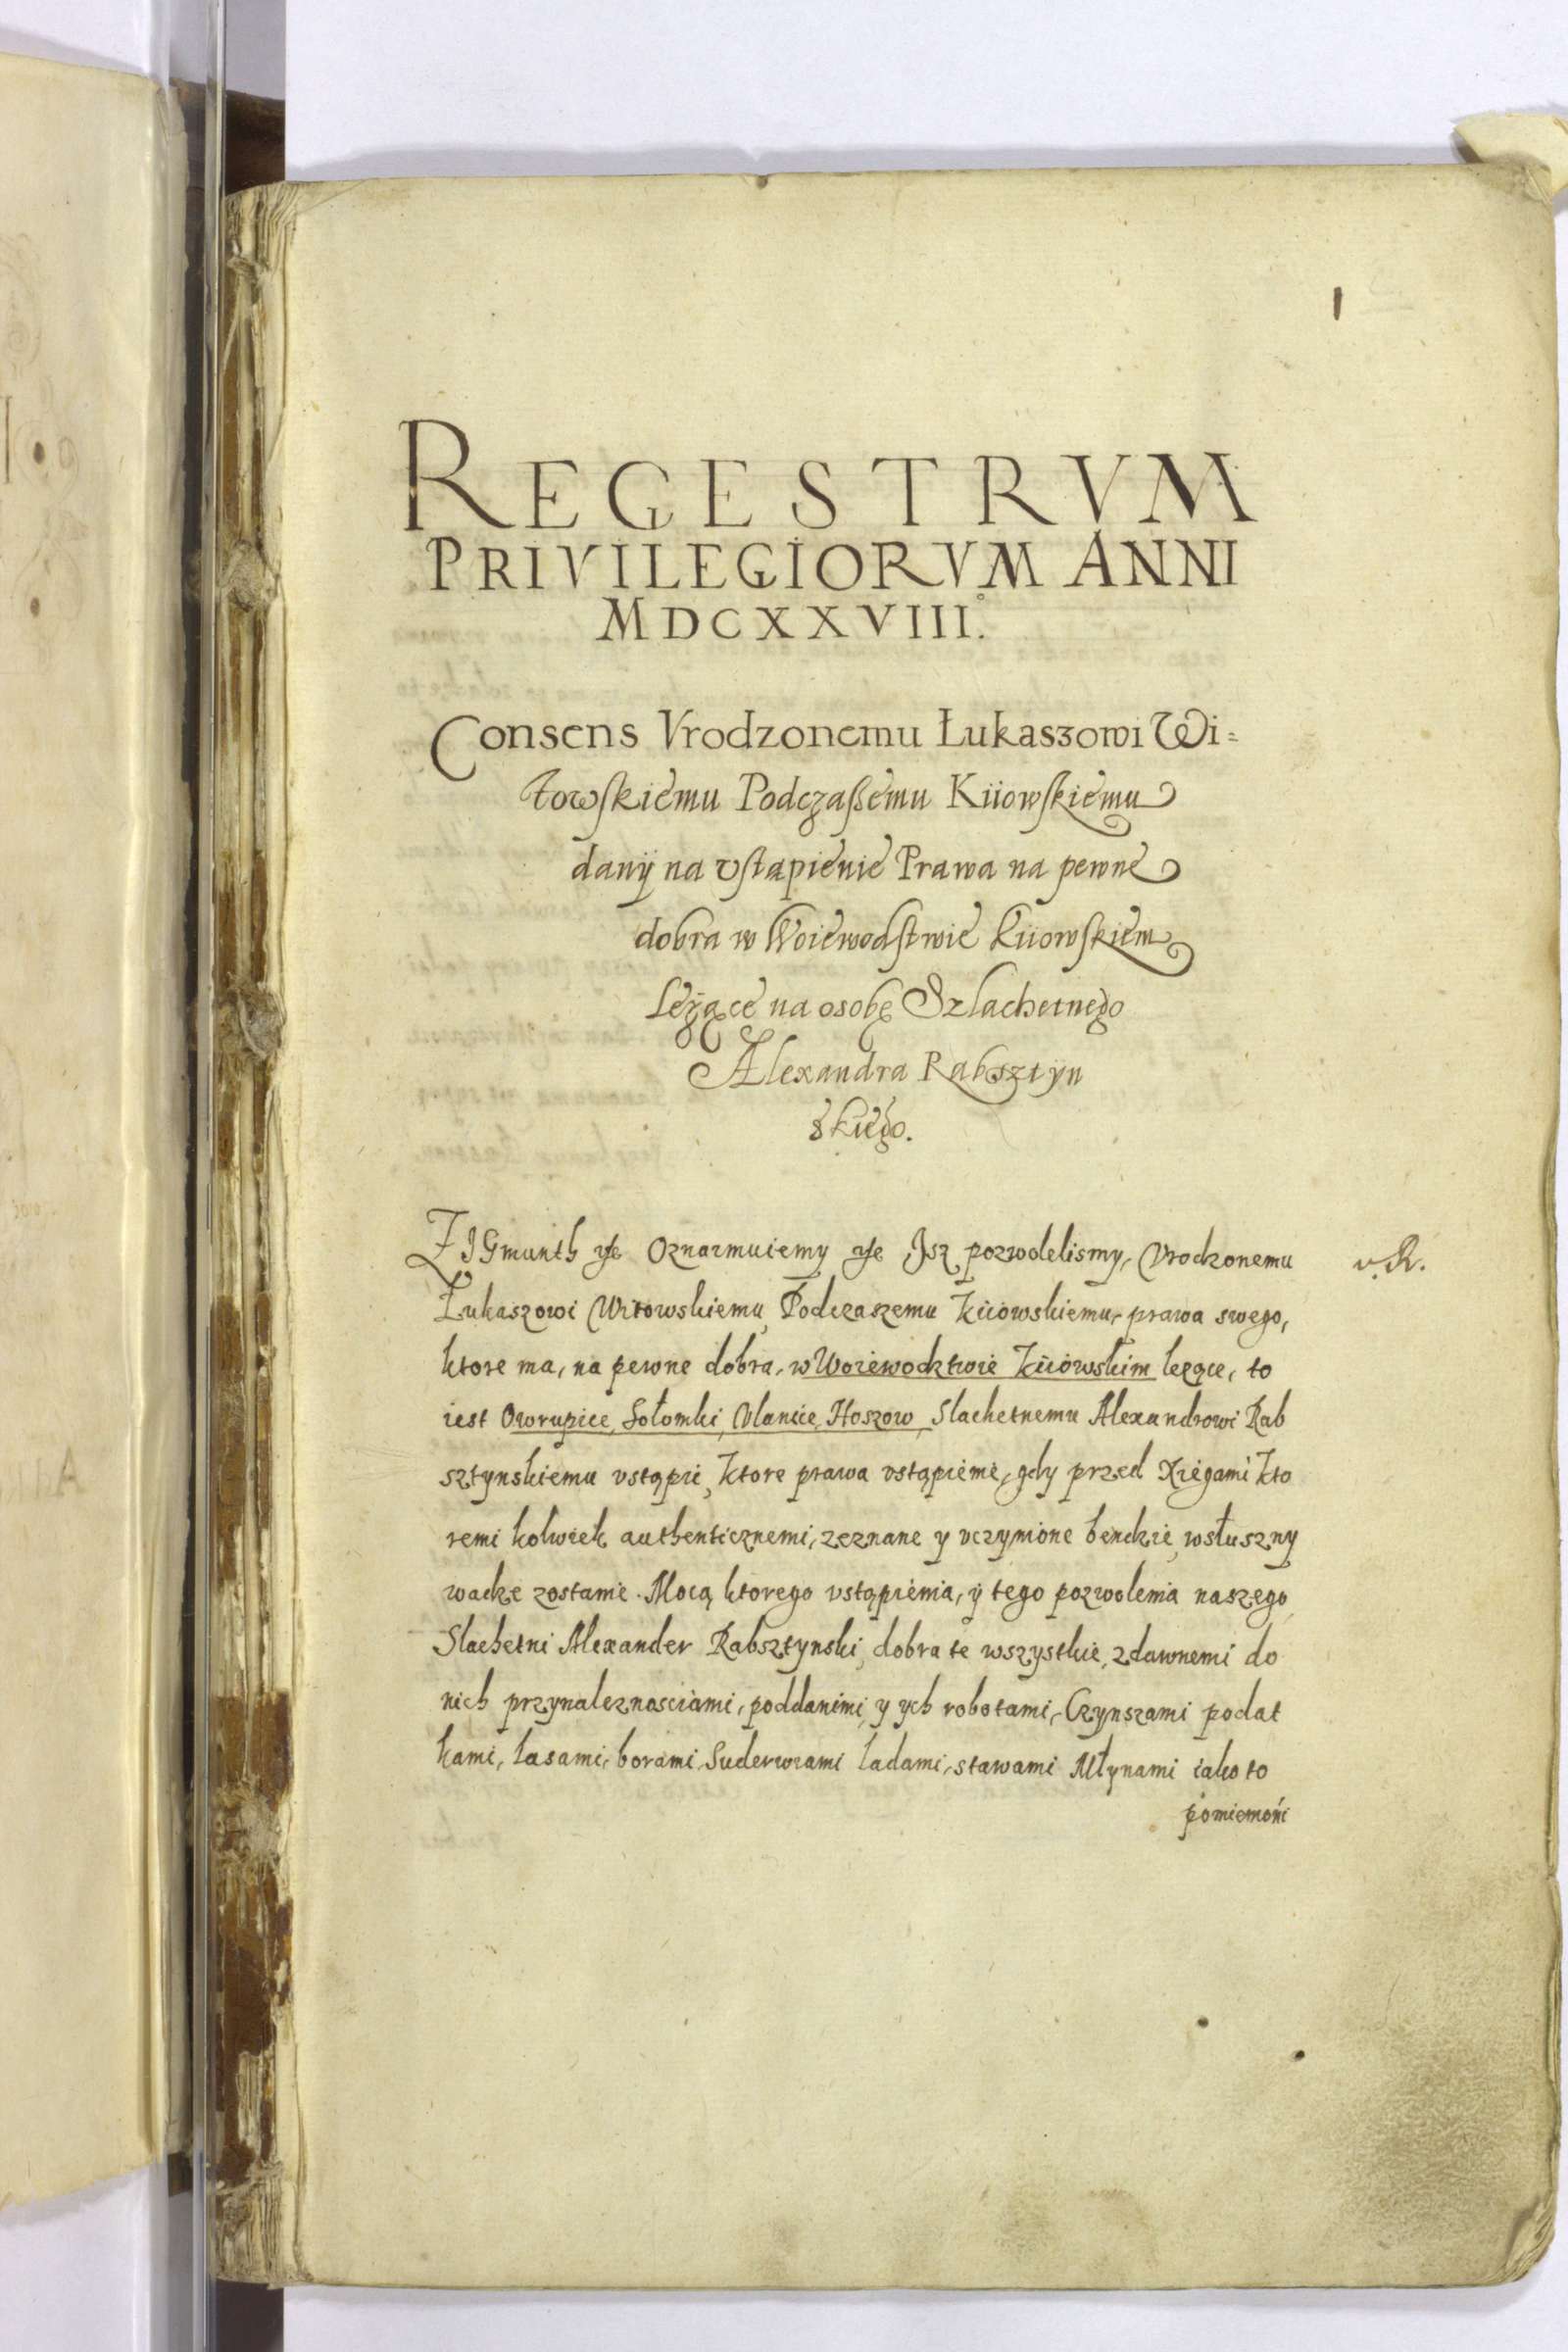 1
REGESTRVM
PRIVILEGIORVM ANNI
MDCXXVIII.
Consens Vrodzonemu Łukaszowi Wi=
towskiemu Podczaßemu Kiiowskiemu
danÿ na vstąpienie Prawa na pewne
dobra w Woiewodstwie Kiiowskiem
Leżące na osobę Szlachetnego
Alexandra Rabsztyn
skiego.
ZIGmunth etc Oznaimuiemy etc Jsz pozwolelismy, Vrodzonemu
v. R.
Łukaszowi Witowskiemu, Podczaszemu Kiiowskiemu, prawa swego,
ktore ma, na pewne dobra, w Woiewodztwie Kiiowskim lezące, to
iest Owrupice, Sołomki, Vlancie, Hoszow, Slachetnemu Alexandrowi Rab
sztynskiemu vstąpić, Ktore prawa vstąpienie, gdy przed Xięgami Kto
remi kolwiek authenticznemi, zeznane y vczynione bendzie, w słuszny
wadze zostanie. Mocą ktorego vstąpienia, ÿ tego pozwolenia naszego
Slachetni Alexander Rabsztynski, dobra te wszystkie, z dawnemi do
nich przynaleznosciami, poddanimi, y ych robotami, Czynszami podat
kami, lasami, borami, Suderwiami ladami, stawami Młynami iako to
pomiemoni